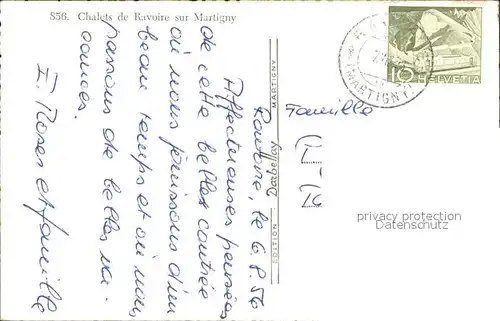 S56. Chalets de Ravoire sur Martigny
MARTIGNY
10
HELVETIA
Famille
EDITION Darbellay MARTIGNY
privacy protection
Datenschutz
Ravoire, le 6.8.56
Affectueuses pensées
de cette belle contrée
où nous jouissons d'un
beau temps et où nous
passons de belles va-
cances.
F. Roses et famille